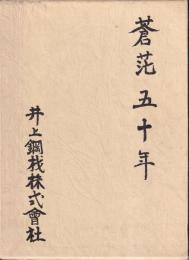 蒼茫五十年
井上鋼材株式會社